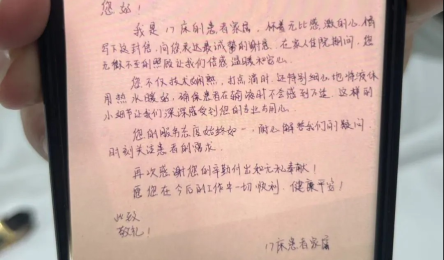 您好！
我是17床的患者家属，怀着无比感激的心情
写下这封信，向您表达最诚挚的谢意。在家人住院期间，您
无微不至的照顾让我们倍感温暖和安心。
您不仅技术娴熟，打点滴时，还特别细心地将液体
用热水暖好，确保患者在输液时不会感到不适。这样的
小细节让我们深深感受到您的专业与用心。
您的服务态度始终如一，耐心解答我们的疑问
时刻关注患者的需求。
再次感谢您的辛勤付出和无私奉献！
愿您在今后的工作中一切顺利，健康平安！
此致
敬礼！
17床患者家属